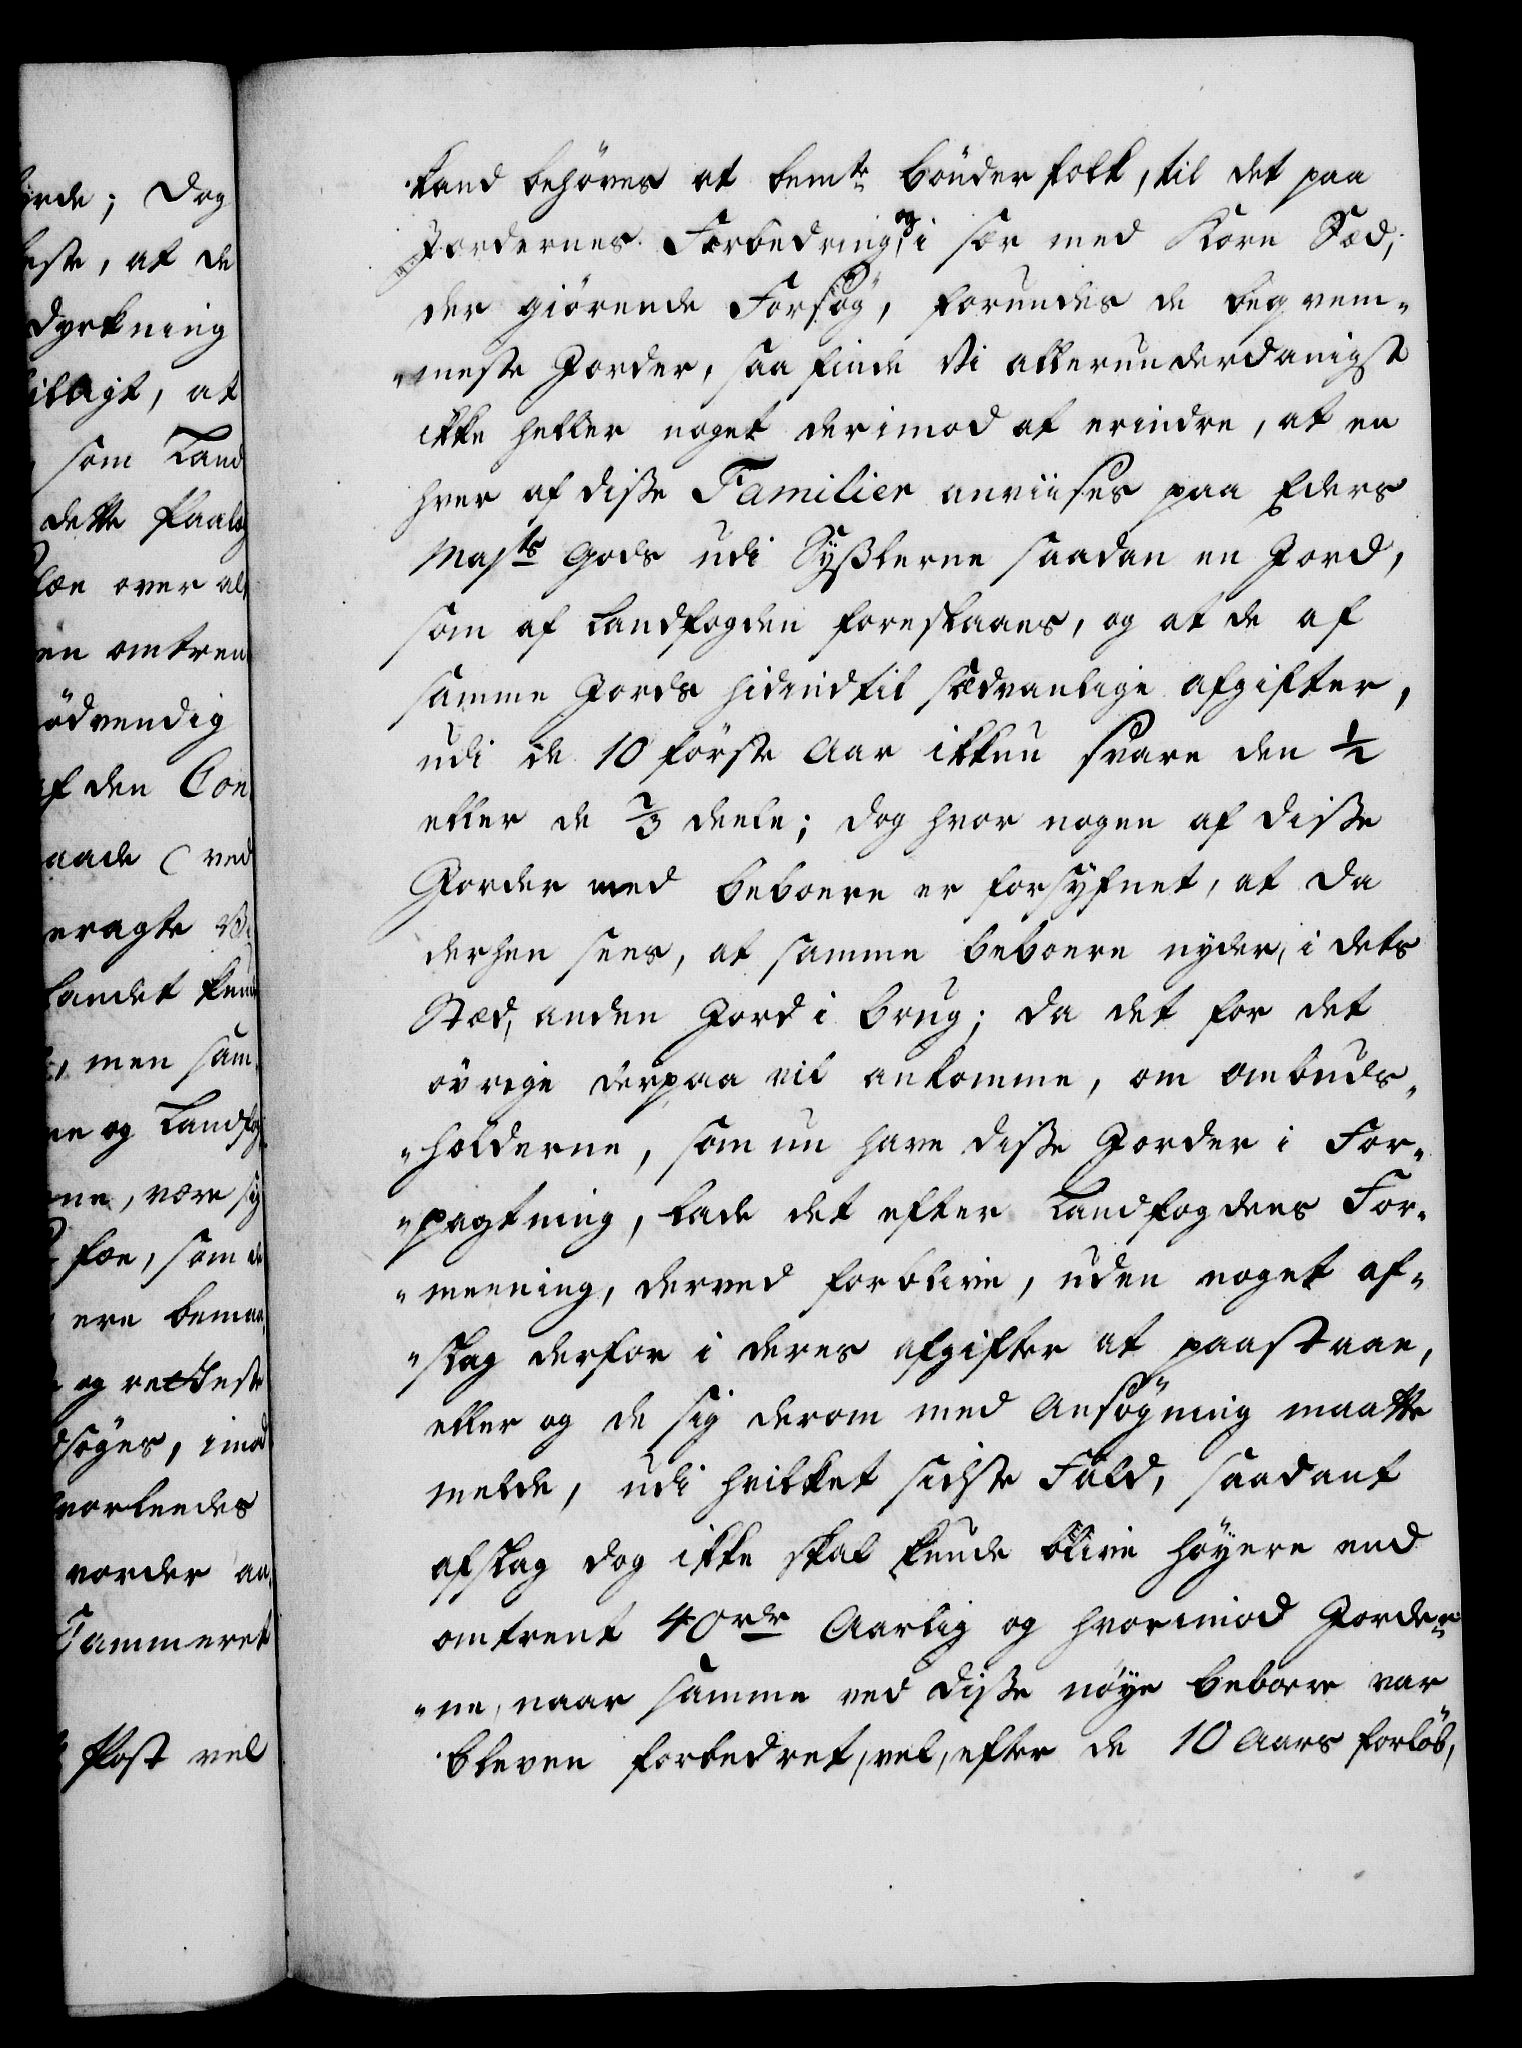 yrde; Dog
este, at de
Dyrkning
som Land
dette
over al
en omtren
ødvendig
af den Con
aade (ved
eragte
Landet
men sam
ne og Landfog
ne, være
som de
ere
og
søges, imod
vorledes
vorder
Cammeret
Post vel
kand behøves at bemte Bønder folk, til det paa
Jordernes Forbedring, og i sær med Korn Sæd,
der giørende Forsøg, forundes de beqvem-
meste Jorder, saa finde Vi allerunderdanigst
ikke heller noget derimod at erindre, at en
hver af disse Familier anviises paa Eders
Majts Gods udi Sysslerne saadan en Jord,
som af Landfogden foreslaaes, og at de af
samme Jords hidindtil sædvanlige afgifter,
udi de 10 første Aar ikkun svare den ½
eller de ⅔ deele; dog hvor nogen af disse
Jorder med beboere er forsyfnet, at da
derhen sees, at samme beboere nyder, i dets
Stæd, anden Jord i brug; da det for det
øvrige derpaa vil ankomme, om ombuds-
holderne, som nu have disse Jorder i For-
pagtning, lade det efter Landfogdens For-
meening, derved forblive, uden noget af-
slag derfor i deres afgifter at paastaae,
eller og de sig derom med Ansøgning maatte
melde, udi hvilket sidste Fald, saadant
afslag dog ikke skal kunde blive høyere end
omtrent 40 rdr Aarlig og hvorimod Jorder-
ne, naar samme ved disse nøye beboere var
bleven forbedret, vel, efter de 10 Aars forløb,